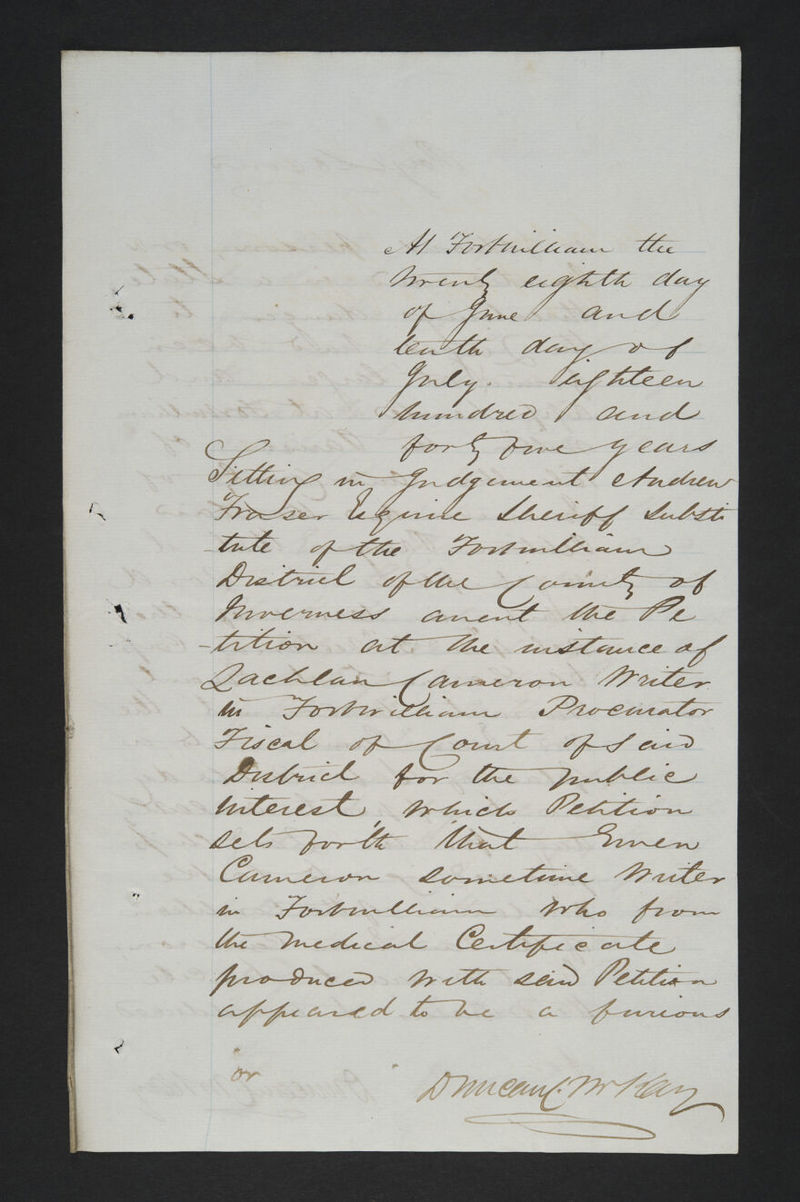 At Fortwilliam the
twenty eighth day
of June and
tenth day of
July. eighteen
hundred and
forty five years
Sitting in Judgement Andrew
Fraser Esquire Sheriff Substi
tute of the Fortwilliam
District of the County of
Inverness anent the Pe
-tition at the instance of
Lachlan Cameron Writer
in Fortwilliam Procurator
Fiscal of Court of said
District for the public
interest, which Petition
sets forth that Ewen
Cameron sometime Writer
in Fortwilliam who from
the Medical Certificate
produced with said Petition
appeared to be a furious
or
Duncan C. McKay